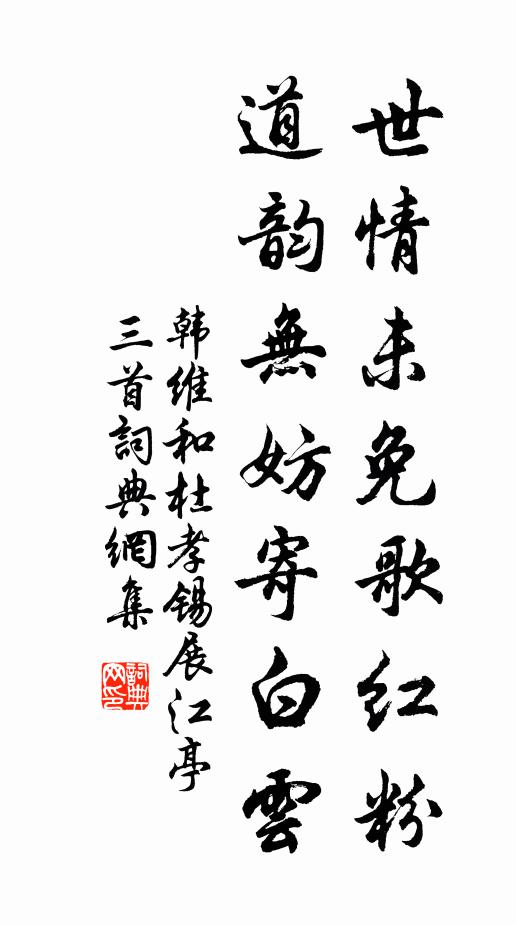 世情未免歌红粉
道韵無妨寄白雲
韩维和杜孝锡展江亭
三首詞典網集
詞典網印